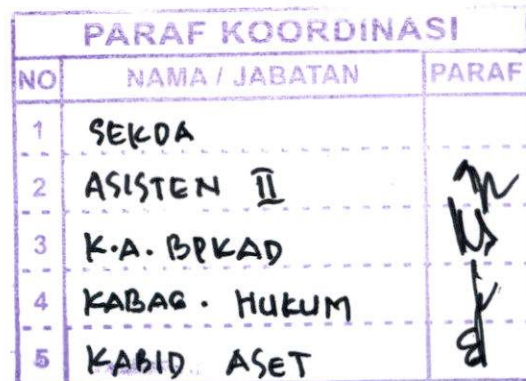 PARAF KOORDINASI
NO NAMA / JABATAN PARAF
1 SEKDA
2 ASISTEN II
3 K.A. BPKAD
4 KABAG. HUKUM
5 KABID ASET